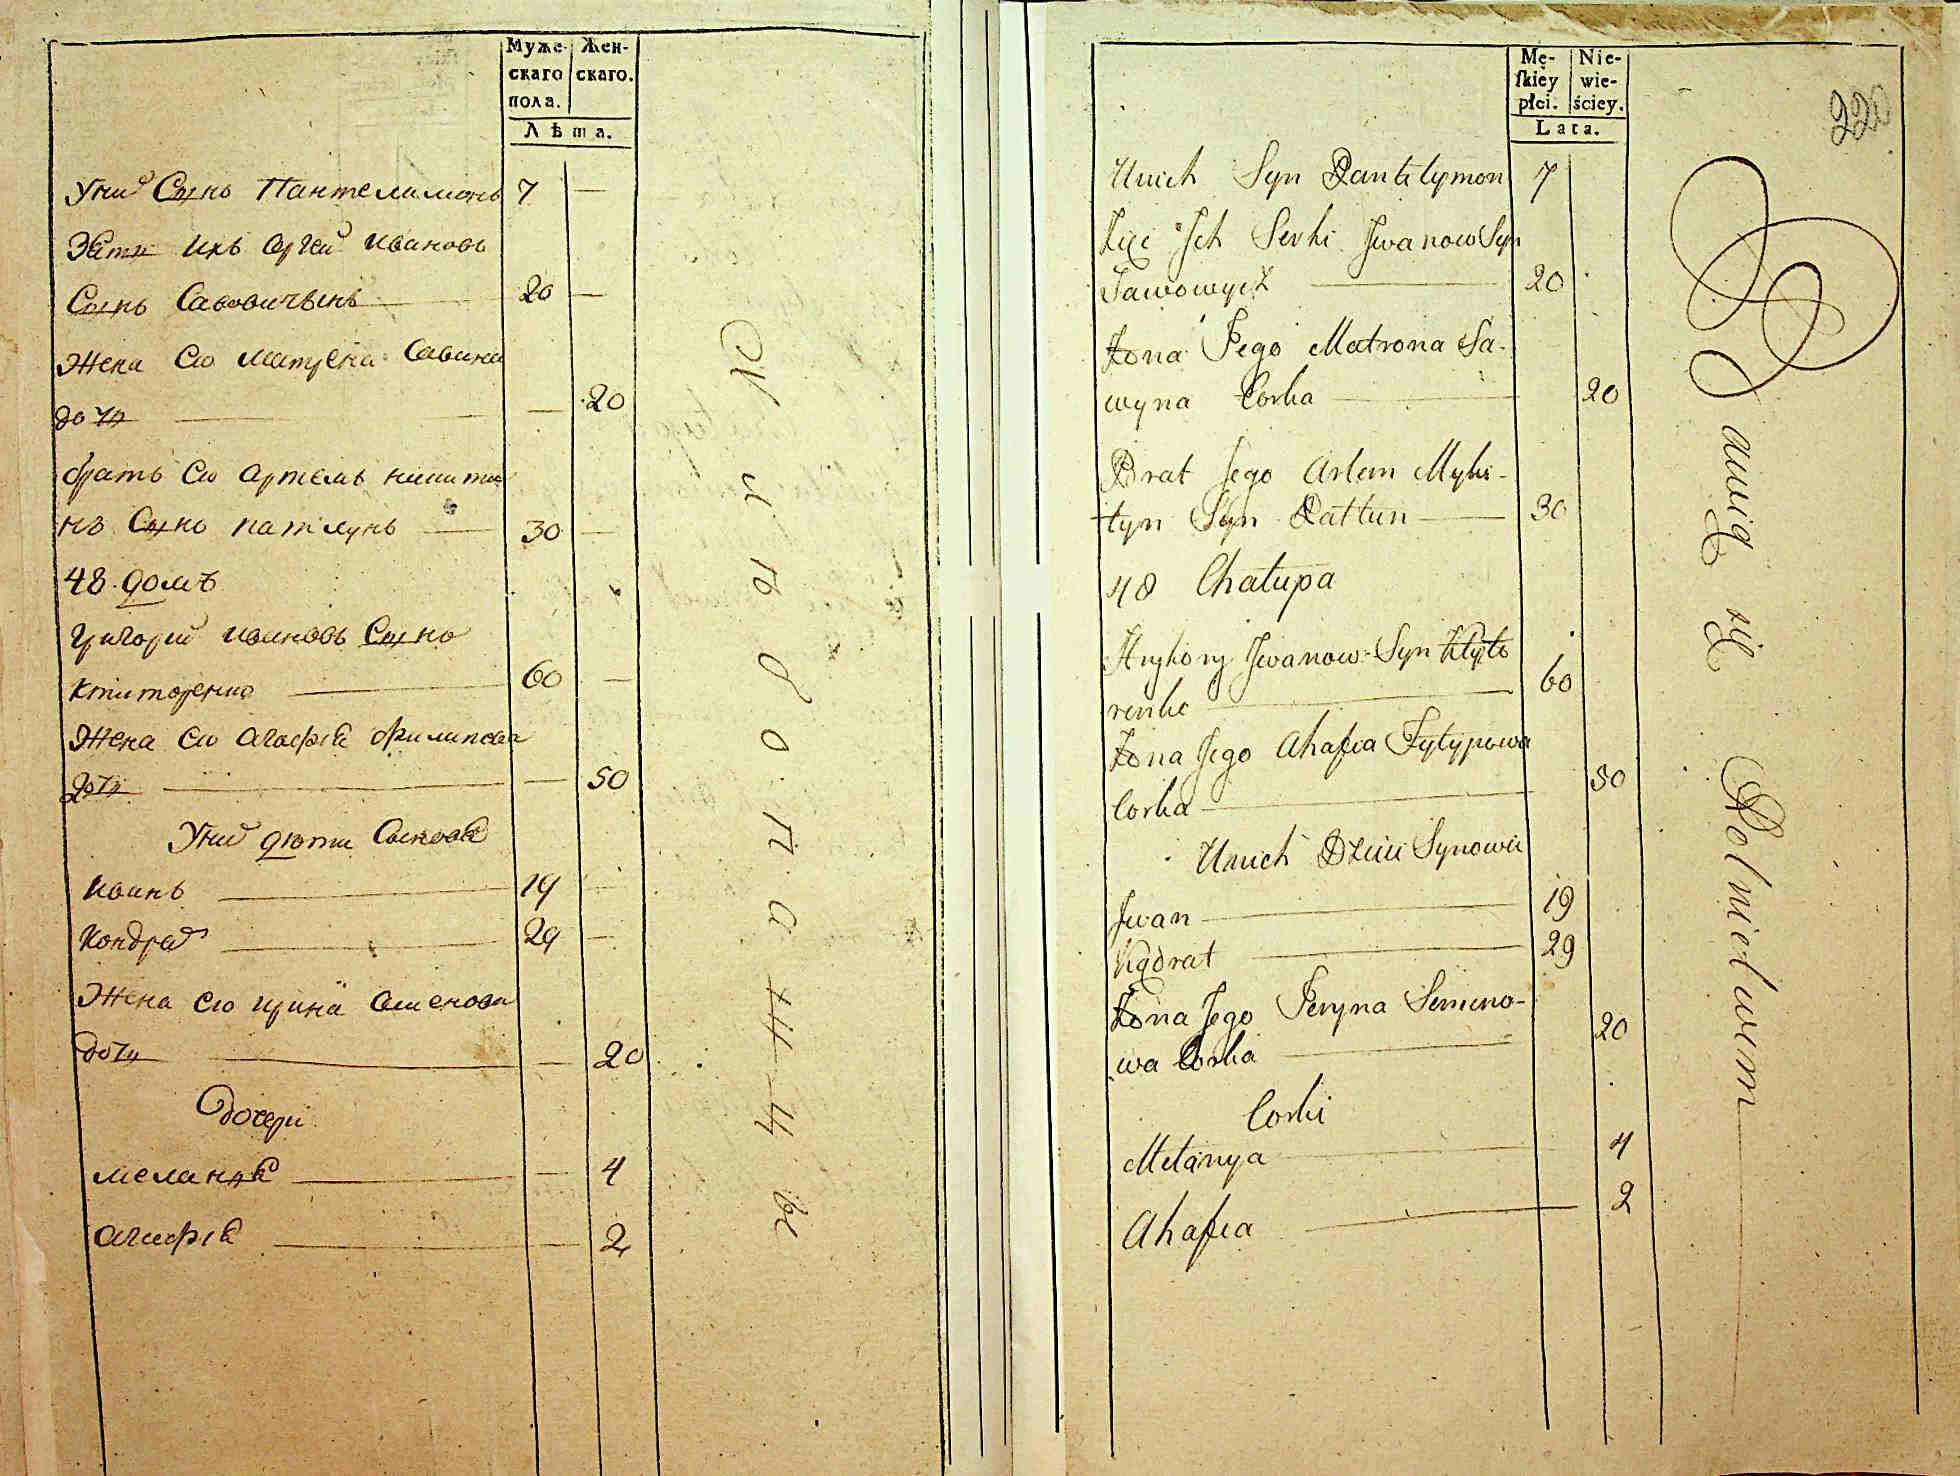 Муже- Жен-
скаго скаго.
пола.
Лѣта.
У них Сынъ Пантелимонъ 7 —
Зять ихъ Сергей Ивановъ
Сынъ Савовичынъ 20 —
Жена его Матрена Савина
дочь — 20
братъ его Артемъ Никити
нъ Сынъ Патлунъ 30 —
48. домъ
Григорий Ивановъ Сынъ
Ктиторенко 60 —
Жена его Агафіа Филипова
дочь — 50
У них дѣти Сыновя
Иванъ 19 —
Кондрат 29 —
Жена его Ирина Семенова
дочь — 20
дочери
Меланya — 4
Агафіа — 2
Mę- Nie-
ſkiey wie-
płci. ściey.
Lata.
220
Unich Syn Pantelymon 7
Zięć Jch Serhi Jwanow Syn
Sawowycz 20
Żona Jego Matrona Sa-
wyna Corka 20
Brat Jego Artem Myki-
tyn Syn Patlun 30
48 Chałupa
Hryhory Jwanow Syn Ktyto
renko 60
Żona Jego Ahafia Fylypowa
Corka 50
Unich Dzieci Synowie
Jwan 19
Kądrat 29
Żona Jego Jeryna Semeno-
wa Corka 20
Corki
Melanya 4
Ahafia 2